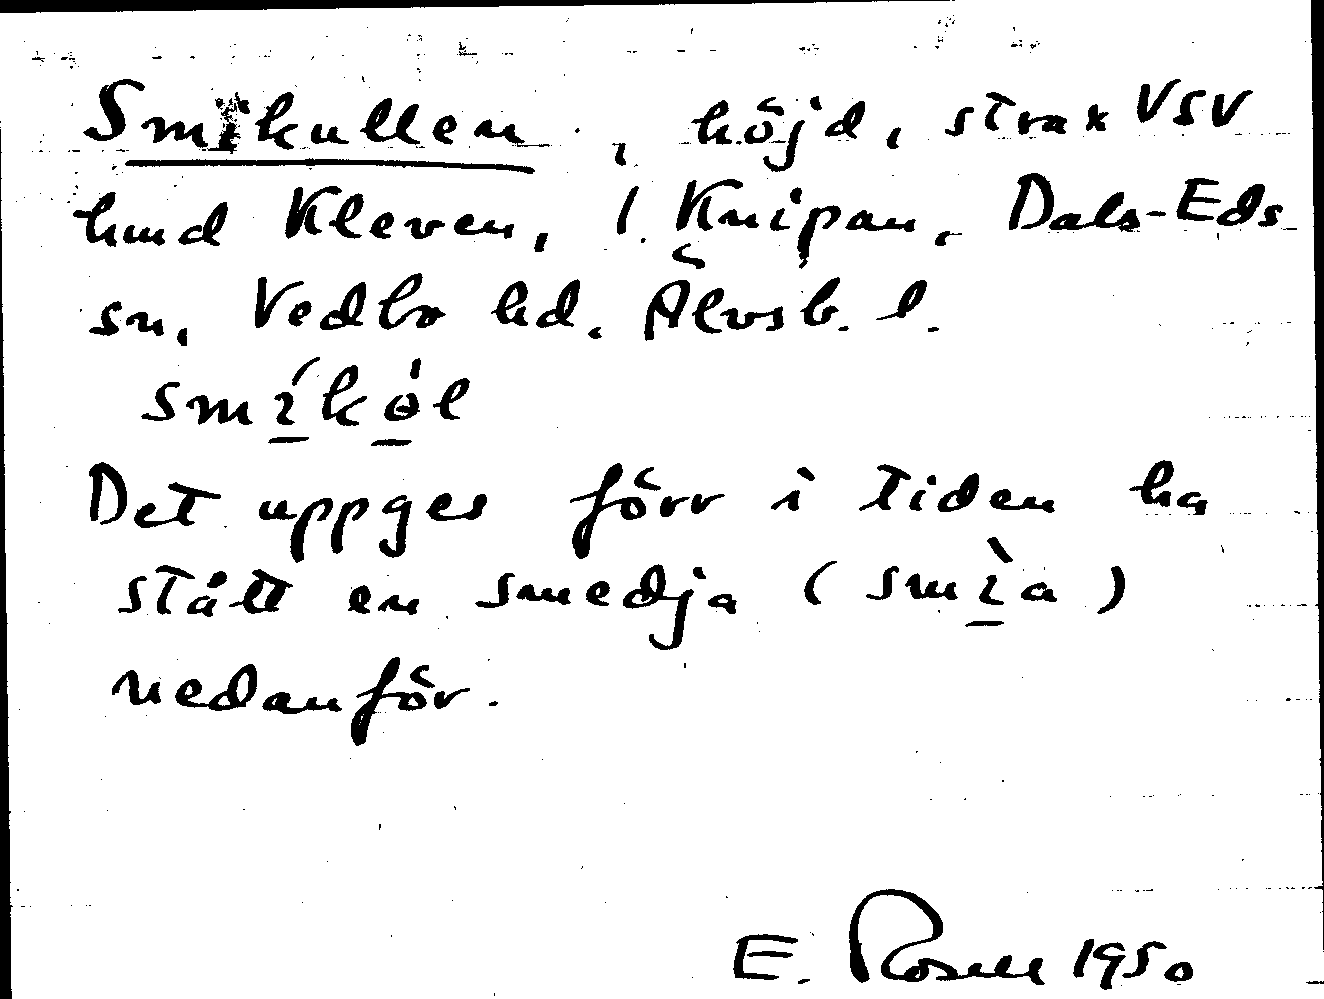 Smikullen, höjd, strax VSV
hmd Kleven, l. Knipan, Dals-Eds
sn, Vedbo hd. Älvsb. l.
smíkól
Det uppges förr i tiden ha
stått en smedja (smìa)
nedanför.
E. Rosell 1950